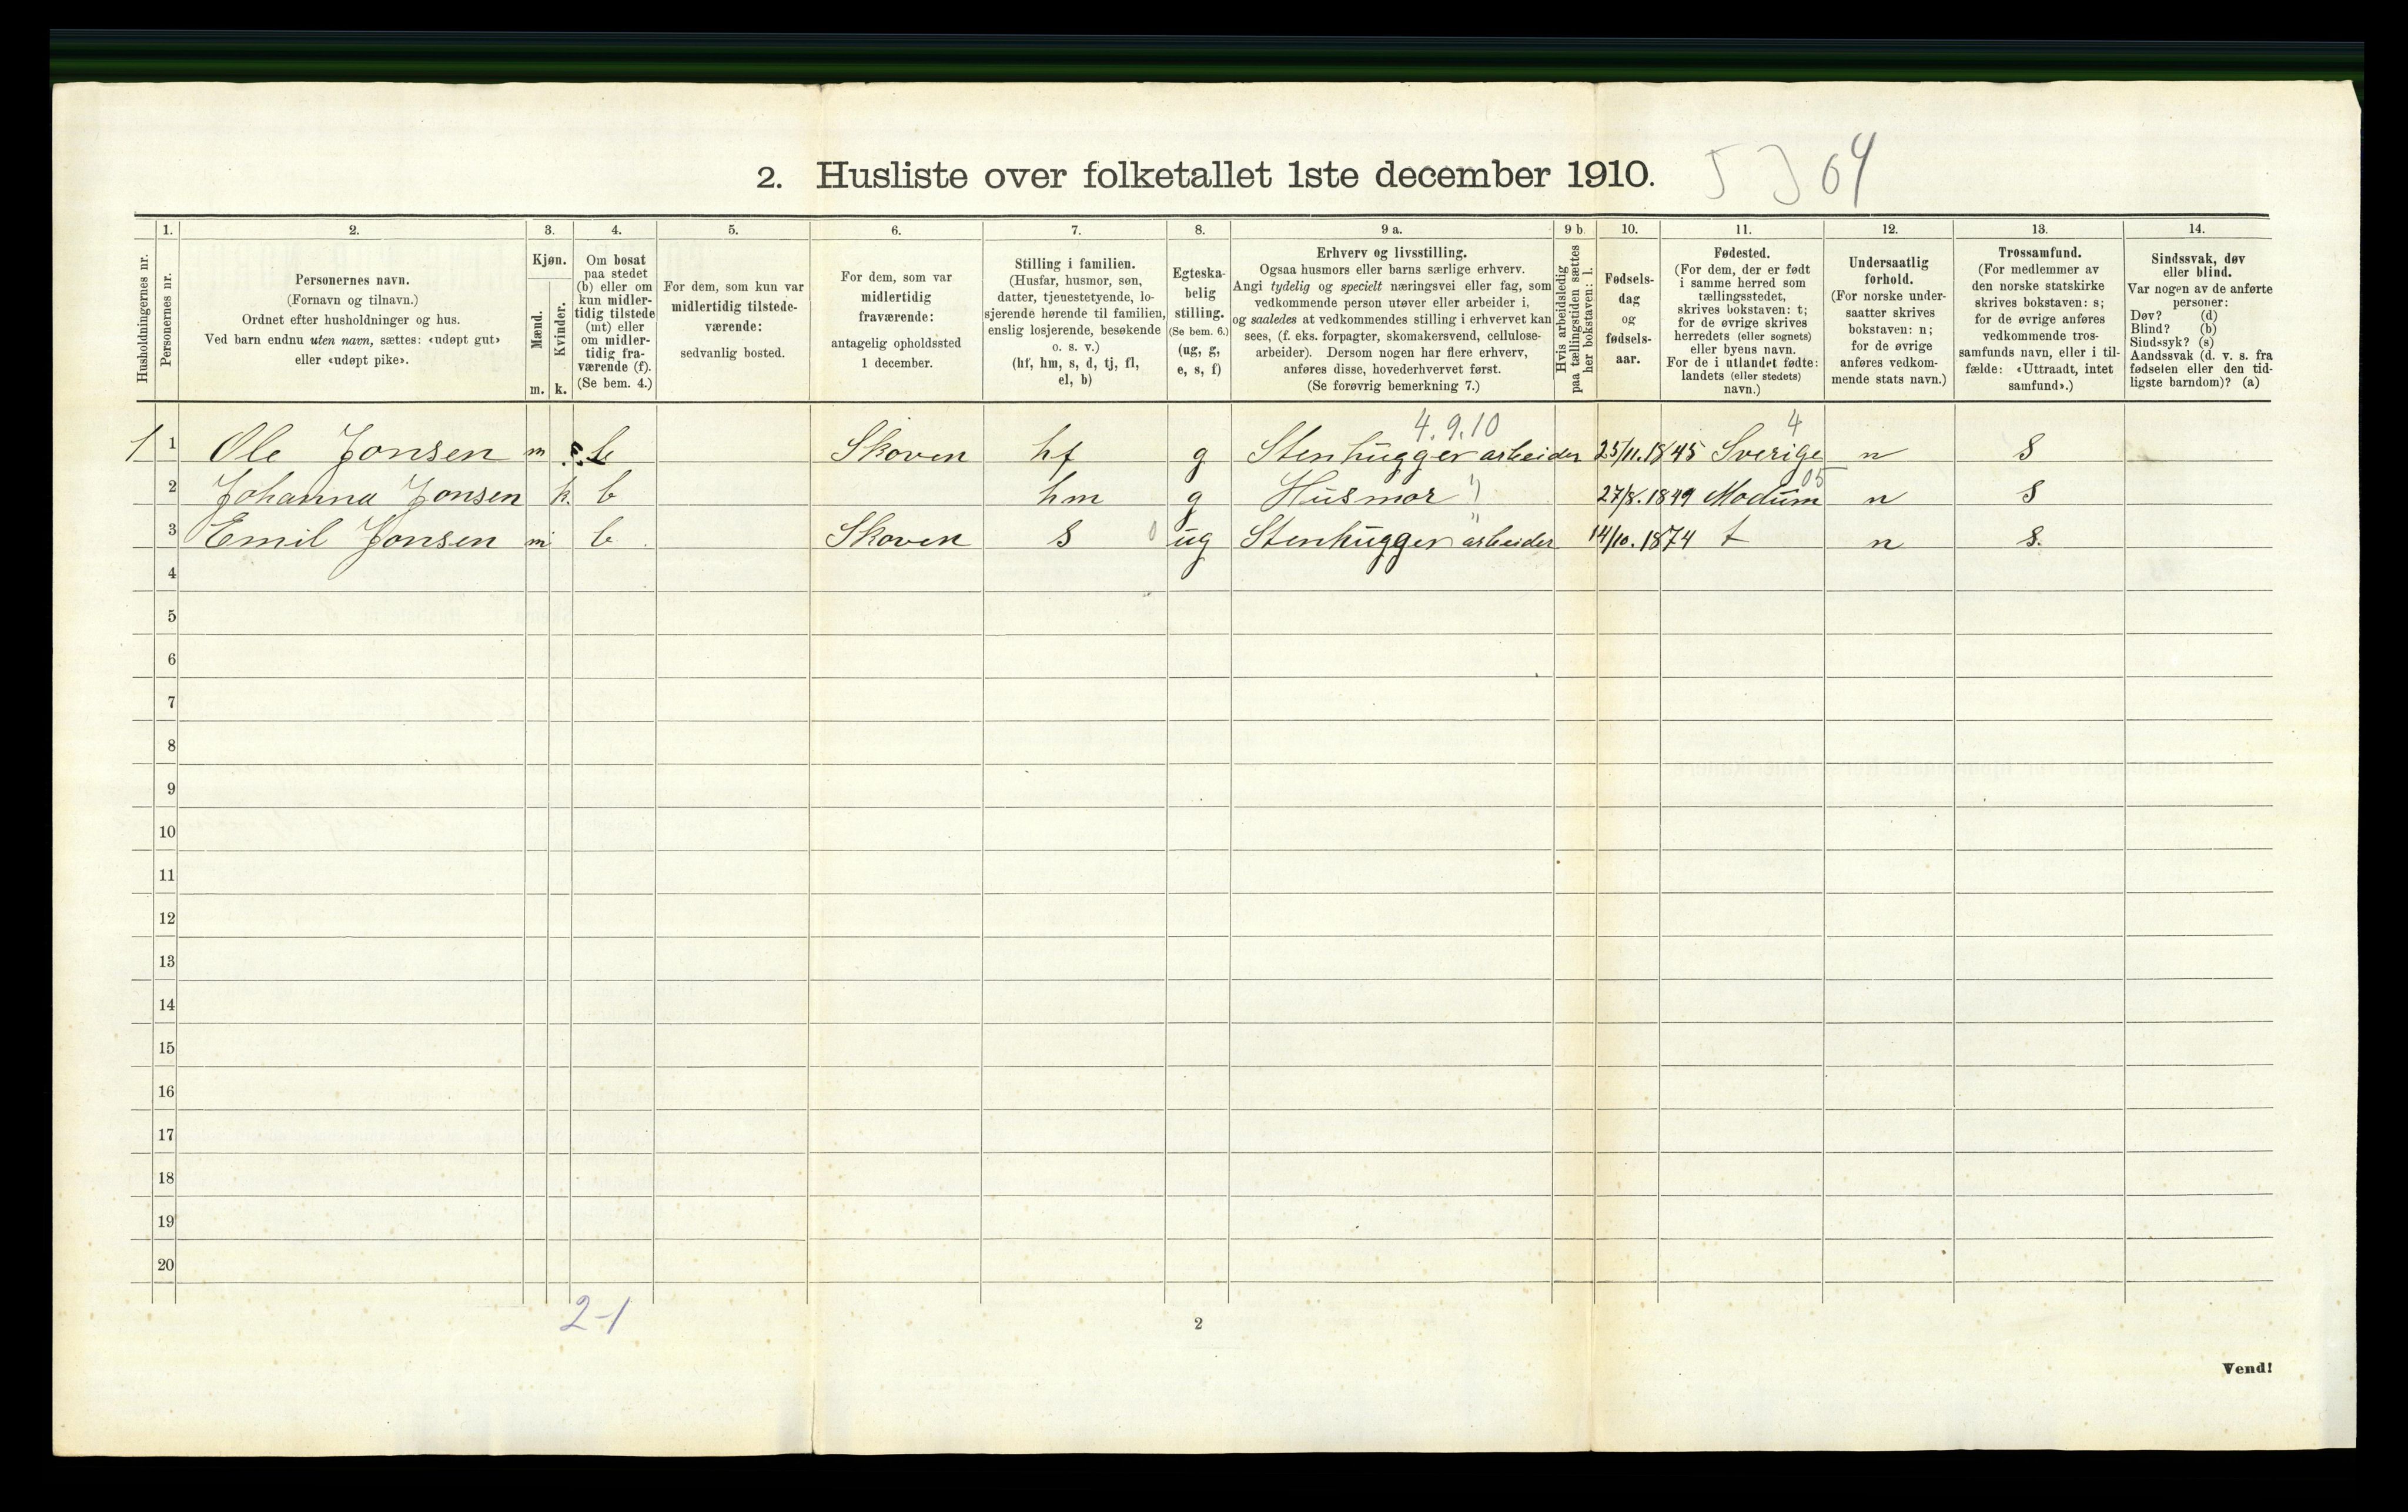 2. Husliste over folketallet 1ste december 1910. 64
Husholdningernes nr.
1.
Personernes nr.
2.
Personernes navn.
(Fornavn og tilnavn.)
Ordnet efter husholdninger og hus.
Ved barn endnu uten navn, sættes: «udøpt gut»
eller «udøpt pike».
3.
Kjøn.
Mænd.
m.
Kvinder.
k.
4.
Om bosat
paa stedet
(b) eller om
kun midler-
tidig tilstede
(mt) eller
om midler-
tidig fra-
værende (f).
(Se bem. 4.)
5.
For dem, som kun var
midlertidig tilstede-
værende:
sedvanlig bosted.
6.
For dem, som var
midlertidig
fraværende:
antagelig opholdssted
1 december.
7.
Stilling i familien.
(Husfar, husmor, søn,
datter, tjenestetyende, lo-
sjerende hørende til familien,
enslig losjerende, besøkende
o. s. v.)
(hf, hm, s, d, tj, fl,
el, b)
8.
Egteska-
belig
stilling.
(Se bem. 6.)
(ug, g,
e, s, f)
9 a.
Erhverv og livsstilling.
Ogsaa husmors eller barns særlige erhverv.
Angi tydelig og specielt næringsvei eller fag, som
vedkommende person utøver eller arbeider i,
og saaledes at vedkommendes stilling i erhvervet kan
sees, (f. eks. forpagter, skomakersvend, cellulose-
arbeider). Dersom nogen har flere erhverv,
anføres disse, hovederhvervet først.
(Se forøvrig bemerkning 7.)
9 b.
Hvis arbeidsledig
paa tællingstiden sættes
her bokstaven: l.
10.
Fødsels-
dag
og
fødsels-
aar.
11.
Fødested.
(For dem, der er født
i samme herred som
tællingsstedet,
skrives bokstaven: t;
for de øvrige skrives
herredets (eller sognets)
eller byens navn.
For de i utlandet fødte:
landets (eller stedets)
navn.)
12.
Undersaatlig
forhold.
(For norske under-
saatter skrives
bokstaven: n;
for de øvrige
anføres vedkom-
mende stats navn.)
13.
Trossamfund.
(For medlemmer av
den norske statskirke
skrives bokstaven: s;
for de øvrige anføres
vedkommende tros-
samfunds navn, eller i til-
fælde: «Uttraadt, intet
samfund».)
14.
Sindssvak, døv
eller blind.
Var nogen av de anførte
personer:
Døv? (d)
Blind? (b)
Sindssyk? (s)
Aandssvak (d. v. s. fra
fødselen eller den tid-
ligste barndom)? (a)
4.9.10 4
1 1 Ole Jonsen m b Skoven hf g Stenhugger arbeider 25/11.1845 Sverige n s
05
2 Johanna Jonsen k. b hm g Husmor " 27/8.1849 Modum n s
3 Emil Jonsen m b Skoven s 0 ug Stenhugger arbeider 14/10.1874 t n s.
4
5
6
7
8
9
10
11
12
13
14
15
16
17
18
19
20
2-1
2
Vend!